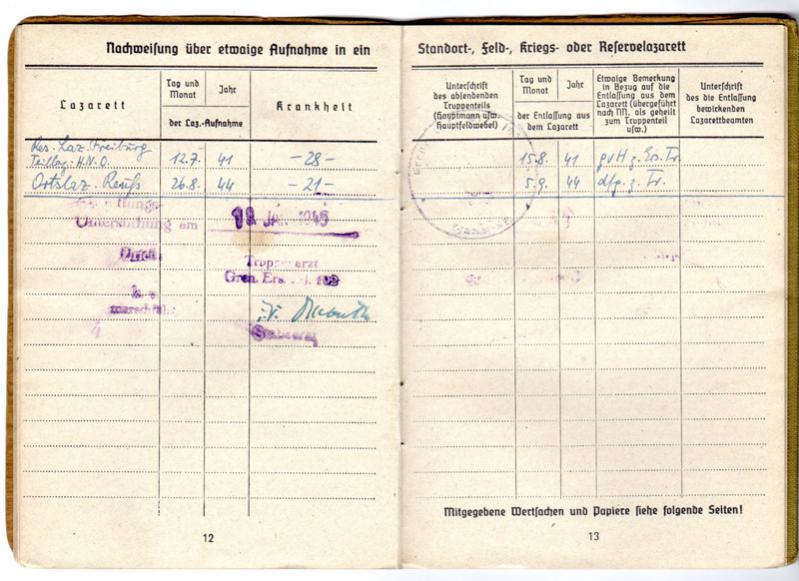 Nachweisung über etwaige Aufnahme in ein
Lazarett
Tag und Monat
Jahr
der Laz.-Aufnahme
Krankheit
Res. Laz. Freiburg
Teillaz. H.N.O. 12.7. 41 -28-
Ortslaz. Reuß 26.8. 44 -21-
Untersuchung am
Truppenarzt
Gren. Ers.
12
Standort-, Feld-, Kriegs- oder Reservelazarett
Unterschrift
des absendenden
Truppenteils
(Hauptmann usw.
Hauptfeldwebel)
Tag und Monat
Jahr
der Entlassung aus
dem Lazarett
Etwaige Bemerkung
in Bezug auf die
Entlassung aus dem
Lazarett (übergeführt
nach NN. als geheilt
zum Truppenteil
usw.)
Unterschrift
des die Entlassung
bewirkenden
Lazarettbeamten
15.8. 41 gvH z. Ers. Tr.
5.9. 44 dfg. z. Tr.
Mitgegebene Wertsachen und Papiere siehe folgende Seiten!
13